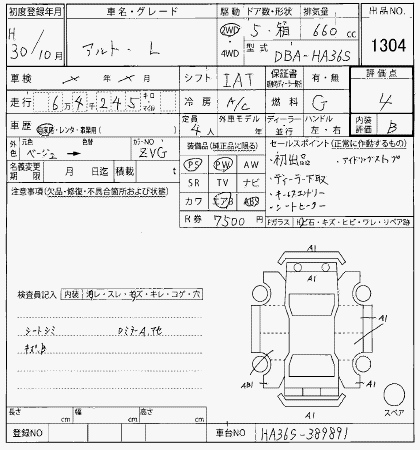 初度登録年月 車名・グレード 駆動 ドア数・形状 排気量 出品NO.
H 30/10月 アルト・L 2WD 4WD 5・箱 660 cc 1304
型式 DBA-HA36S
車検 × 年 × 月 シフト IAT 保証書 有・無 評価点
走行 6万4千245 キロ マイル 冷房 A/C 燃料 G 4
車歴 自家用・レンタ・事業用( ) 定員 4人 外車モデル 年 ディーラー 並行 ハンドル 左・右 内装評価 B
外色 元色 ベージュ → 色替 カラーNO ZVG 装備品(純正品に限る) セールスポイント(正常に作動するもの)
名義変更期限 月 日迄 積載 t PS PW ナビ
・初出品 ・アイドリングストップ
注意事項(欠品・修復・不具合箇所および状態) SR TV ナビ
・ディーラー下取
カワ エアB ABS
・キーレスエントリー
・シートヒーター
R券 7500円 Fガラス ヒビ石・キズ・ヒビ・ワレ・リペア跡
検査員記入 内装 ヨゴレ・スレ・キズ・キレ・コゲ・穴
シートシミ
キズ、B
A1
A1
A1
AB1
A1
A1
スペア
長さ cm 幅 cm 高さ cm
登録NO 車台NO HA36S-389891